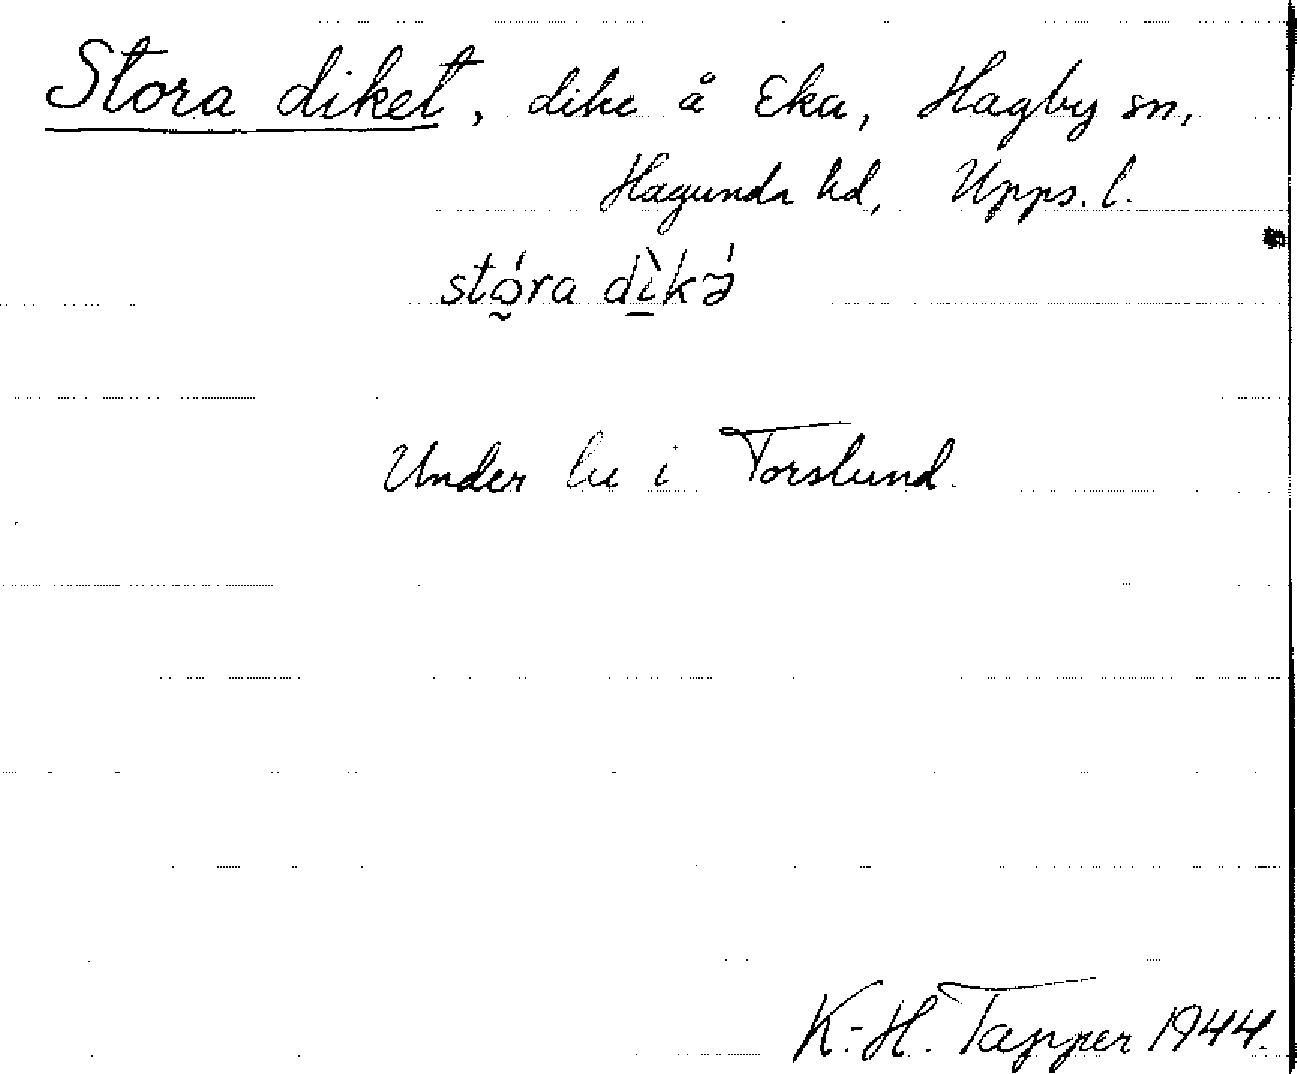 Stora diket, dike å Eka, Hagby sn,
Hagunda hd, Upps. l.
stó̰ra dì̱kə́
Under lu i Torslund.
K.-H. Tapper 1944.